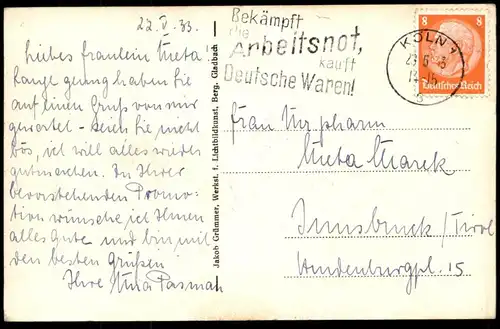 22. V. 33.
Liebes Fräulein Meta!
Lange genug haben Sie
auf einen Gruß von mir
gewartet - seien Sie nicht
bös, ich will alles wieder
gutmachen. Zu Ihrer
bevorstehenden Promo-
tion wünsche ich Ihnen
alles Gute und bin mit
den besten Grüßen
Ihre
Jakob Grümmer, Werkst. f. Lichtbildkunst, Berg. Gladbach
Bekämpft
die
Arbeitsnot,
kauft
Deutsche Waren!
KÖLN 1
8 8
Deutsches Reich
Frau
Meta Marek
Innsbruck / Tirol
15